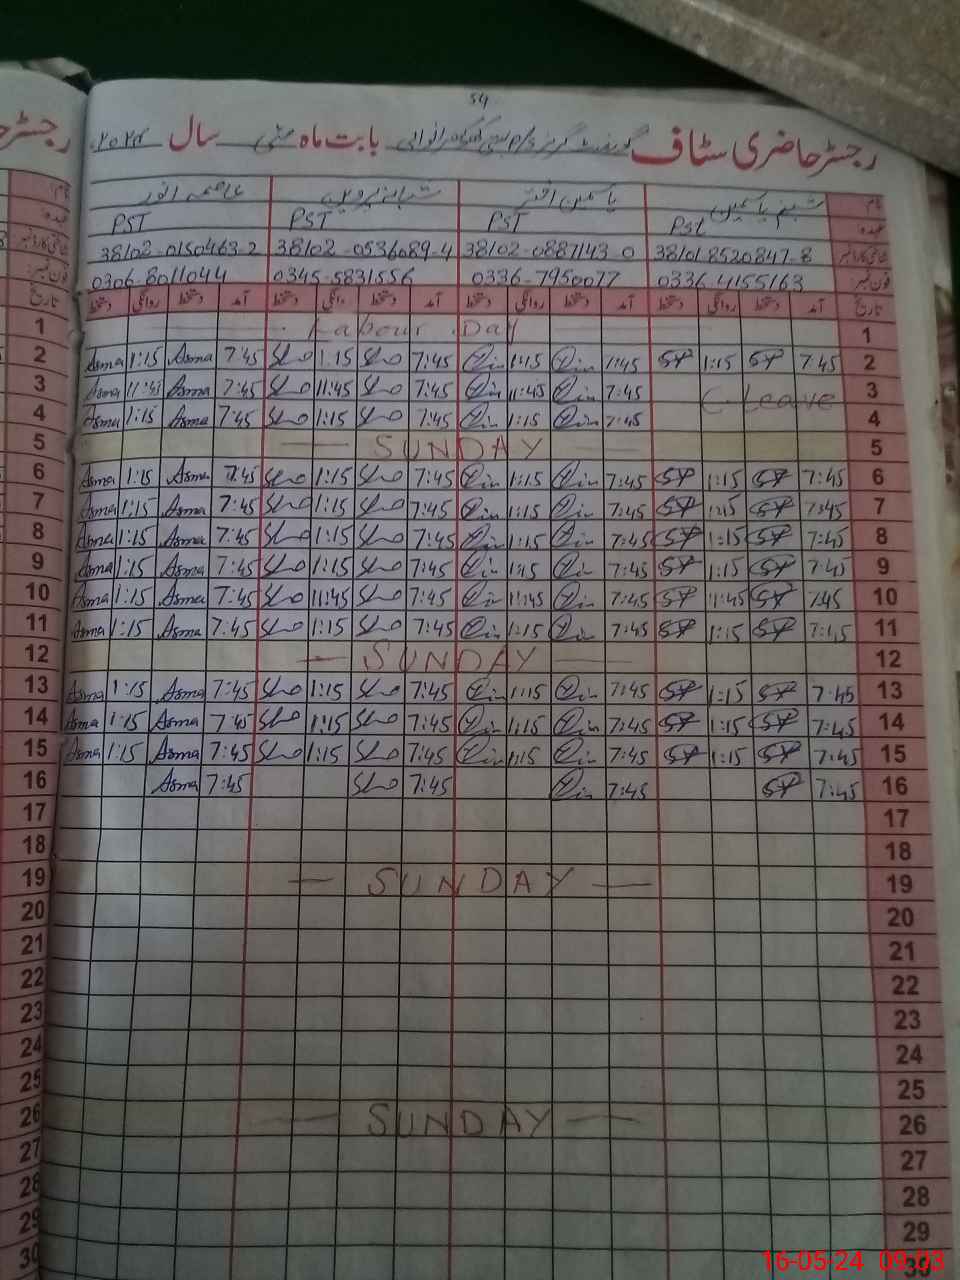 54
رجسٹر حاضری سٹاف گورنمنٹ گرلز بابت ماہ مئی سال ۲۰۲۴
نام شبنم یاسمین یاسمین اختر شبانہ پروین عاصمہ انور
عہدہ Pst PST PST PST
شناختی کارڈ نمبر 38101 8520847-8 38102-0887143-0 38102-0536089-4 38102-0150463-2
فون نمبر 0336-4155163 0336-7950077 0345-5831556 0306-8011044
تاریخ آمد دستخط روانگی دستخط آمد دستخط روانگی دستخط آمد دستخط روانگی دستخط آمد دستخط روانگی دستخط
1 Labour Day 1
2 Asma 1:15 Asma 7:45 1:15 7:45 1:15 7:45 1:15 7:45 2
3 Asma 11:45 Asma 7:45 11:45 7:45 11:45 7:45 C-Leave 3
4 Asma 1:15 Asma 7:45 1:15 7:45 1:15 7:45 4
5 SUNDAY 5
6 Asma 1:15 Asma 7:45 1:15 7:45 1:15 7:45 1:15 7:45 6
7 Asma 1:15 Asma 7:45 1:15 7:45 1:15 7:45 1:15 7:45 7
8 Asma 1:15 Asma 7:45 1:15 7:45 1:15 7:45 1:15 7:45 8
9 Asma 1:15 Asma 7:45 1:15 7:45 1:15 7:45 1:15 7:45 9
10 Asma 1:15 Asma 7:45 11:45 7:45 11:45 7:45 11:45 7:45 10
11 Asma 1:15 Asma 7:45 1:15 7:45 1:15 7:45 1:15 7:45 11
12 SUNDAY 12
13 Asma 1:15 Asma 7:45 1:15 7:45 1:15 7:45 1:15 7:45 13
14 Asma 1:15 Asma 7:45 1:15 7:45 1:15 7:45 1:15 7:45 14
15 Asma 1:15 Asma 7:45 1:15 7:45 1:15 7:45 1:15 7:45 15
16 Asma 7:45 7:45 7:45 7:45 16
17 17
18 18
19 SUNDAY 19
20 20
21 21
22 22
23 23
24 24
25 25
26 SUNDAY 26
27 27
28 28
29 29
30 30
16-05-24 09:03